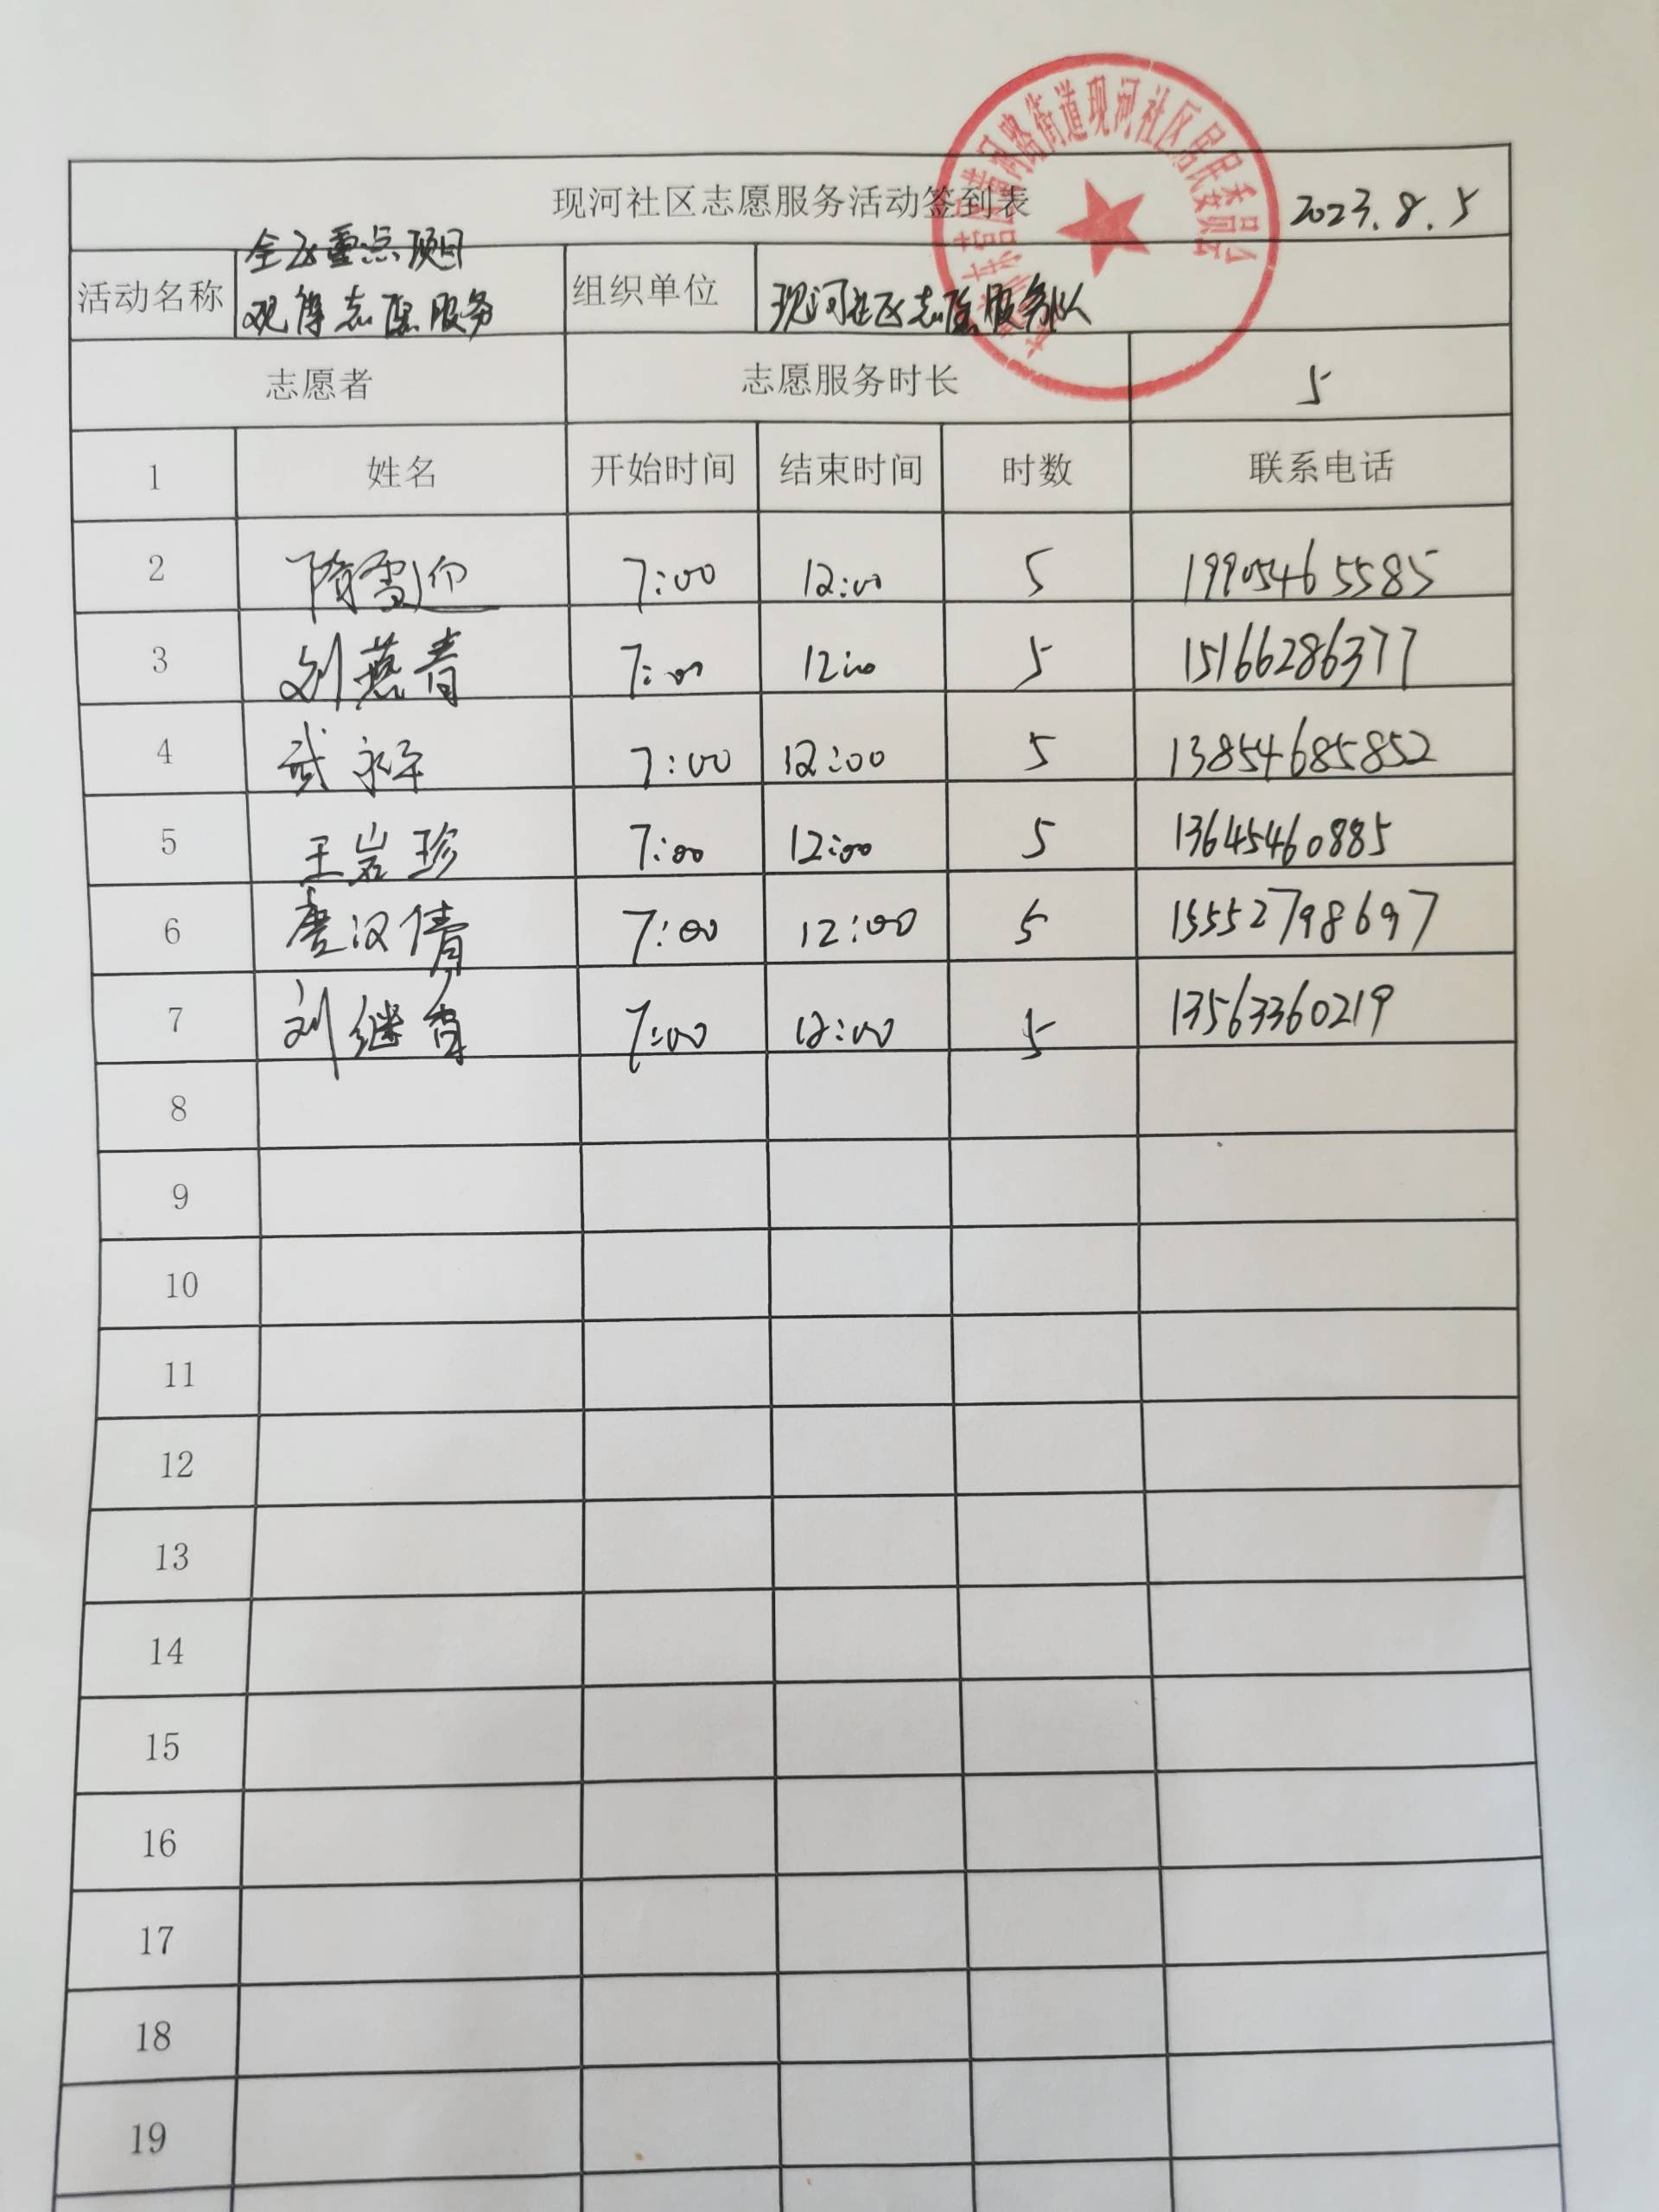 现河社区志愿服务活动签到表 2023.8.5
活动名称 全区重点项目 组织单位 现河社区志愿服务队
观摩志愿服务
志愿者 志愿服务时长 5
1 姓名 开始时间 结束时间 时数 联系电话
2 隋雪迎 7:00 12:00 5 19905465585
3 刘燕青 7:00 12:00 5 15166286377
4 武永军 7:00 12:00 5 13854685852
5 王岩珍 7:00 12:00 5 13645460885
6 唐汉倩 7:00 12:00 5 15552798697
7 刘继肖 7:00 12:00 5 13563360219
8
9
10
11
12
13
14
15
16
17
18
19
黄河路街道现河社区居民委员会